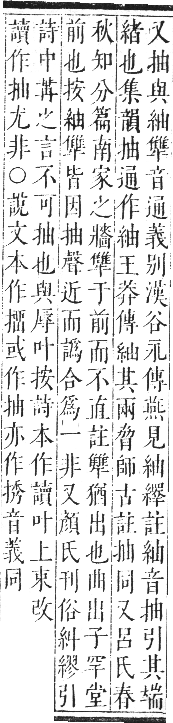 又抽與紬犨音通義别漢谷永傳燕見紬繹註紬音抽引其端
緒也集韻抽通作紬王莽傳紬其兩脅師古註抽同又呂氏春
秋知分篇南家之牆犨于前而不直註犨猶出也曲出子罕堂
前也按紬犨皆因抽聲近而譌合爲一非又顏氏刊俗糾繆引
詩中冓之言不可抽也與辱叶按詩本作讀叶上束改
讀作抽尤非○說文本作㨨或作抽亦作㨨音義同